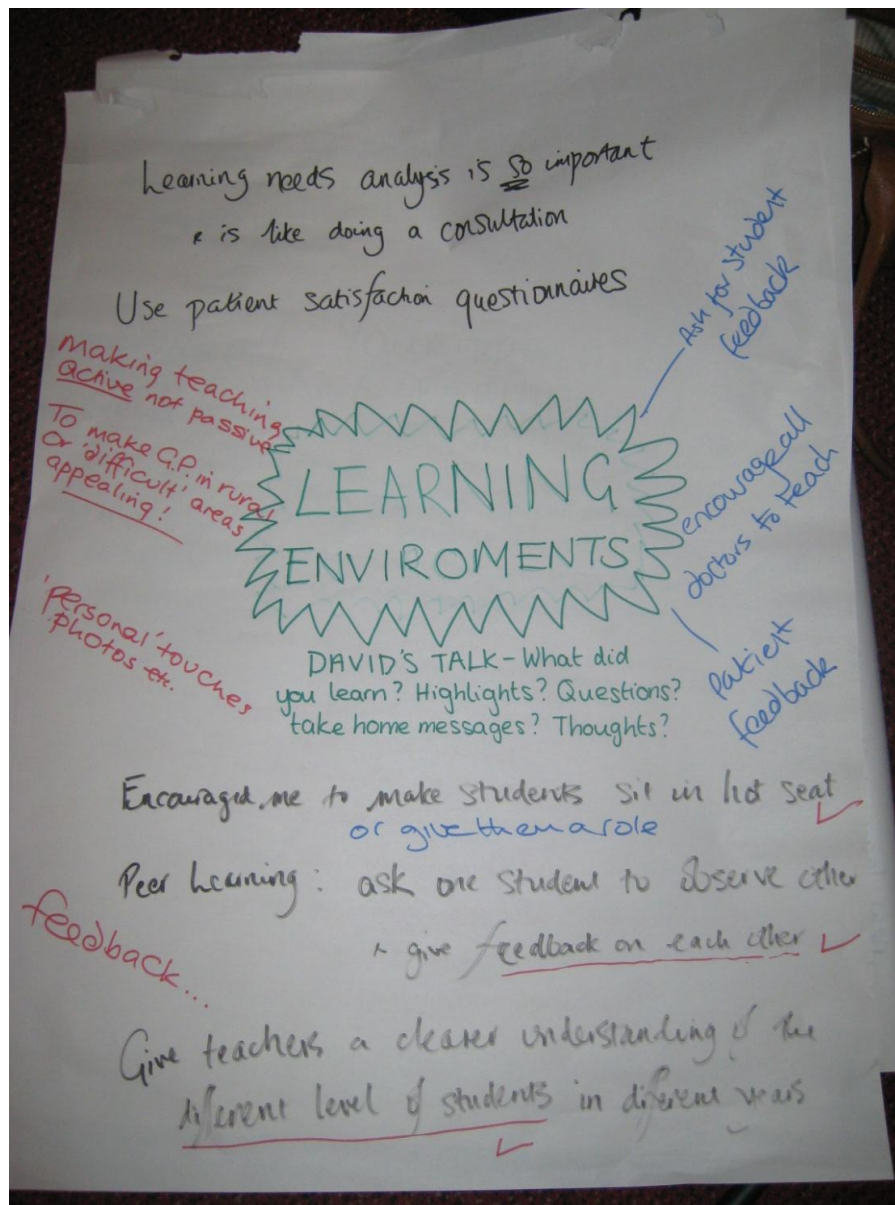 Learning needs analysis is so important
& is like doing a consultation
Use patient satisfaction questionnaires
Ask for student
feedback
making teaching
active not passive
To make G.P. in rural
Or 'difficult' areas
appealing!
LEARNING
ENVIROMENTS
encourage all
doctors to teach
patient
feedback
'personal' touches
photos etc.
DAVID'S TALK - What did
you learn? Highlights? Questions?
take home messages? Thoughts?
Encouraged me to make students sit in hot seat
or give them a role
Peer Learning: ask one student to observe other
& give feedback on each other
feedback...
Give teachers a clearer understanding of the
different level of students in different years